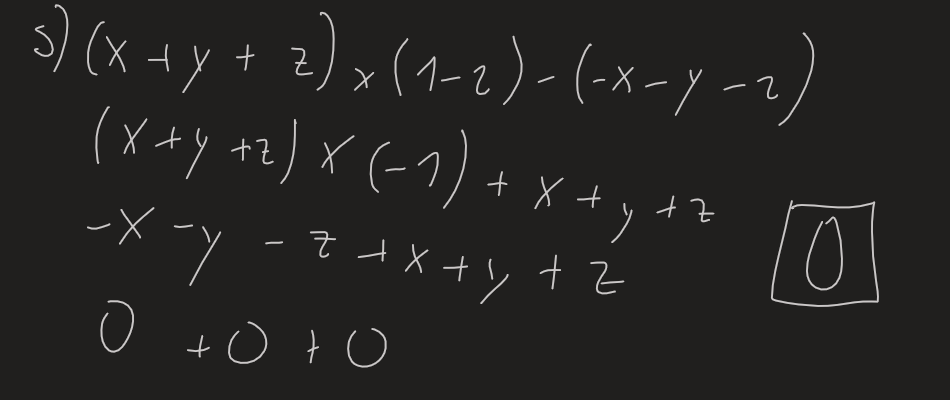 5) (x + y + z) x (1 - 2) - (-x - y - z)
(x + y + z) x (-1) + x + y + z
-x - y - z + x + y + z
0 + 0 + 0
0